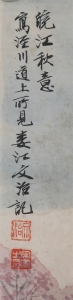 皖江秋意
寫涇川道上所見婁江文治記